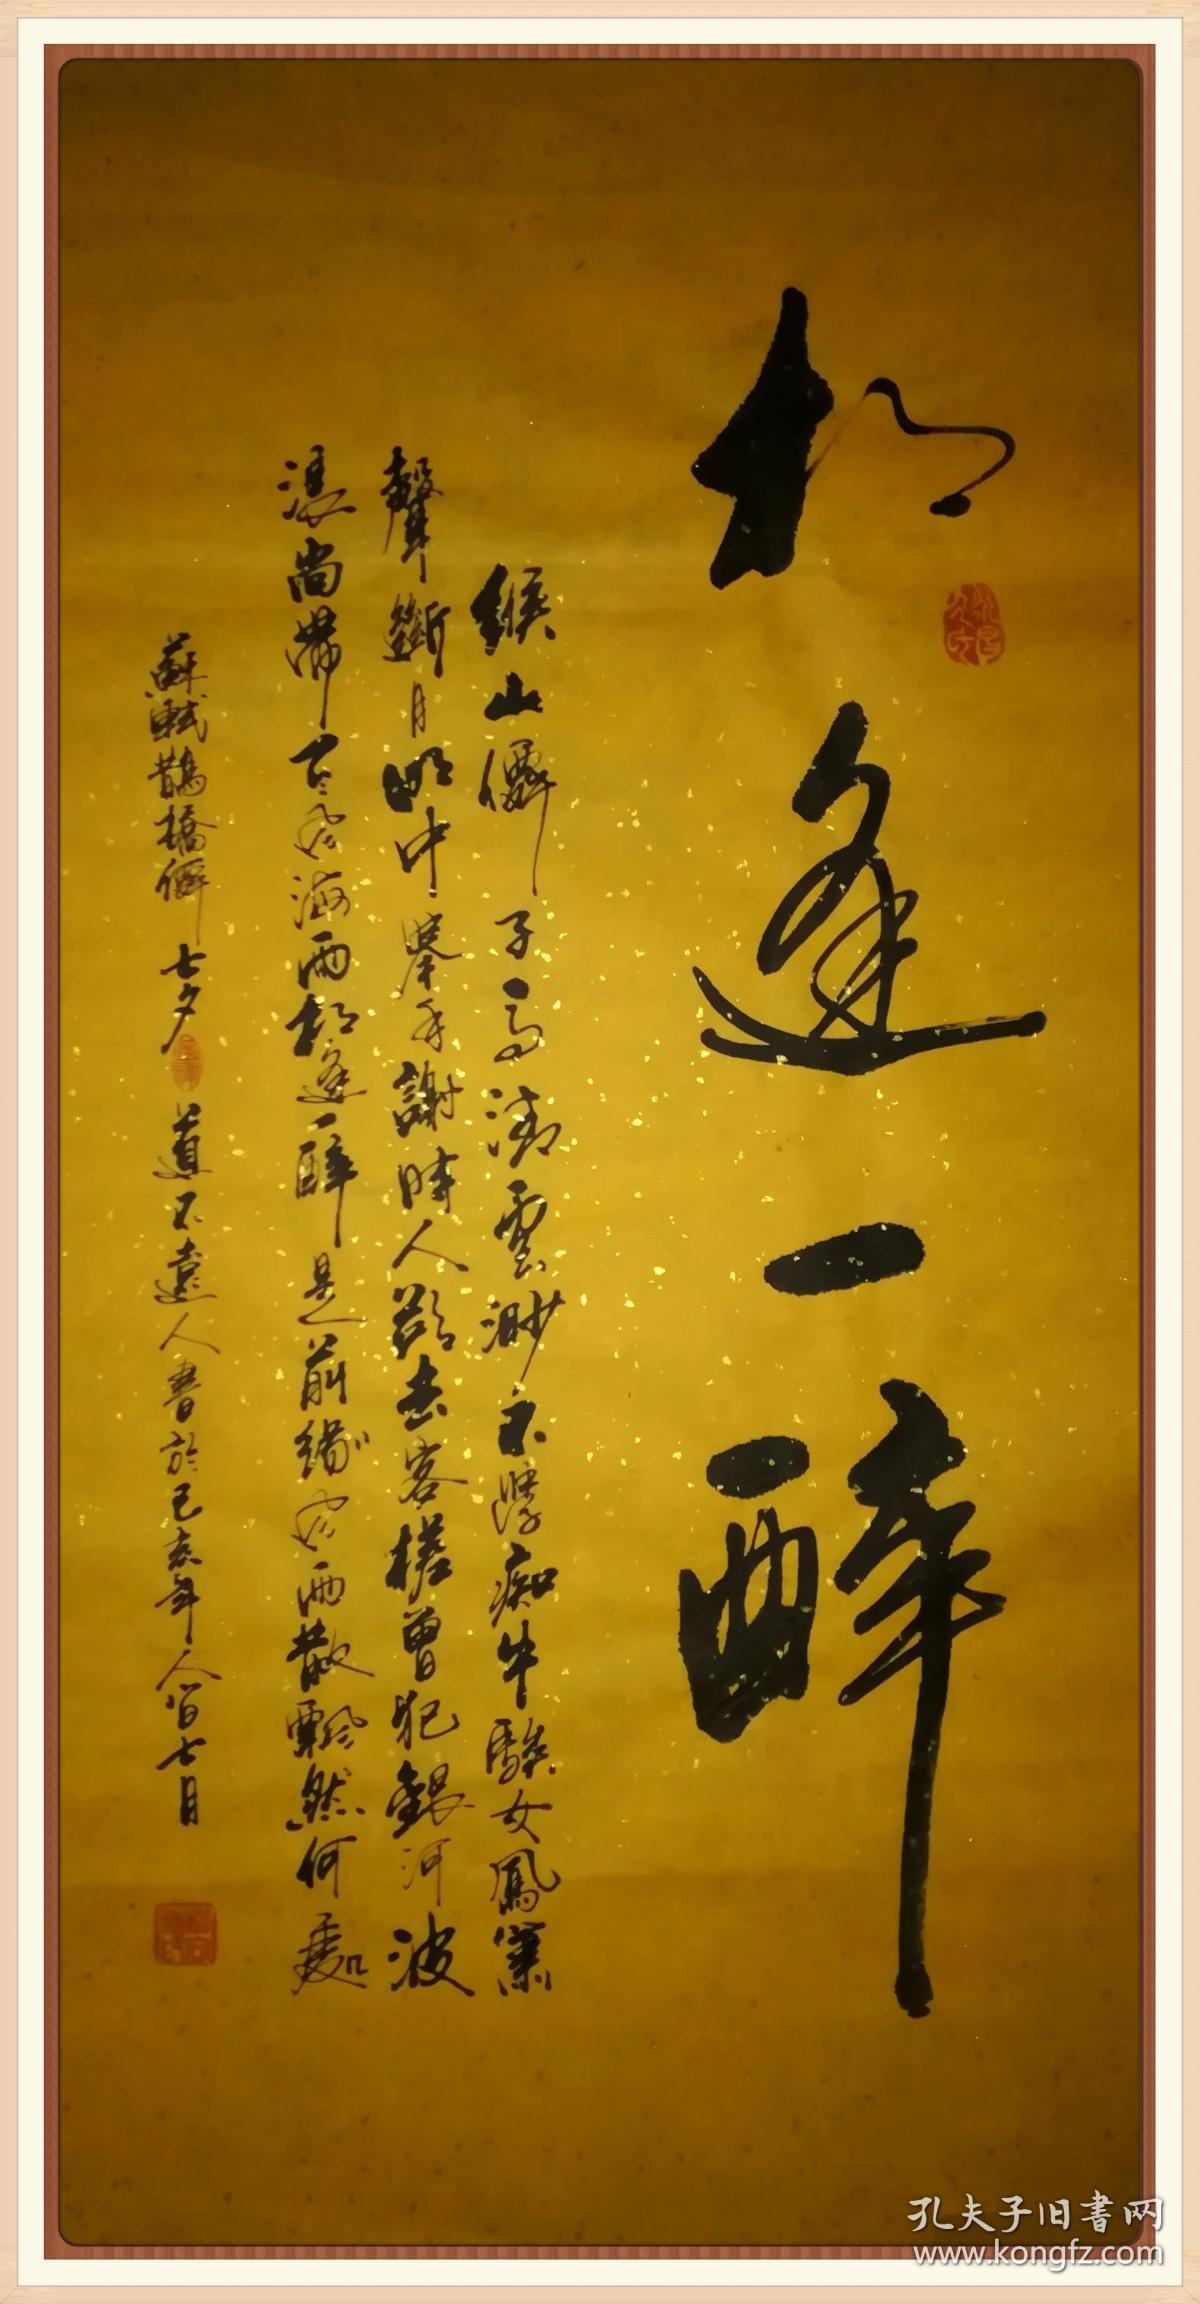 相逢一醉
緱山僊子高清雲渺不學痴牛騃女鳳簫
聲斷月明中舉手謝時人欲去客槎曾犯銀河波
浪尚帶天風海雨相逢一醉是前緣風雨散飄然何處
蘇軾鵲橋僊七夕 道不遠人書於己亥年 七月
孔夫子旧书网
www.kongfz.com